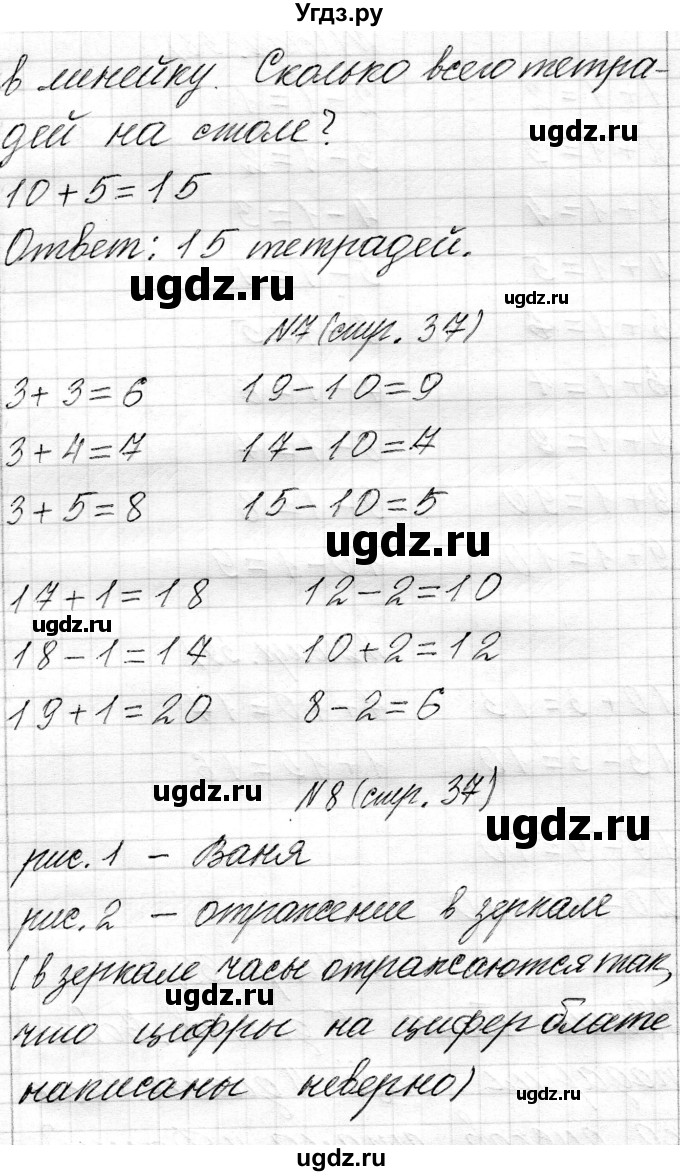 Угдз.ру
в линейку. Сколько всего тетра-
дей на столе?
ugdz.ru
10+5=15
Ответ: 15 тетрадей.
ugdz.ru ugdz.ru
N7 (стр. 37)
3+3=6 19-10=9
3+4=7 17-10=7
3+5=8 15-10=5
ugdz.ru
17+1=18 12-2=10
ugdz.ru
18-1=17 10+2=12
19+1=20 8-2=6
ugdz.ru N8 (стр. 37)
ugdz.ru
рис. 1 - Ваня
рис. 2 - отражение в зеркале
(в зеркале часы отражаются так,
ugdz.ru
что цифры на циферблате
написаны неверно)
ugdz.ru
ugdz.ru